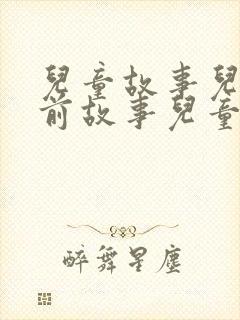 兒童故事兒
前故事兒童
醉舞星塵